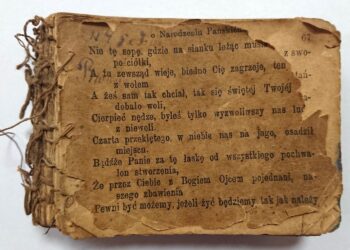 o Narodzeniu Pańskiem. 67
Nie tę sopę, gdzie na sianku leżąc mus z swo-
po ciółki,
A tu zewsząd wieje, biedno Cię zagrzeje, ten
z wołem
A żeś sam tak chciał, tak się świętej Twojej
dobało woli,
Cierpieć nędzę, byleś tylko wyzwoliwszy nas lud
z niewoli.
Czarta przeklętego, w niebie nas na jego, osadził
miejscu.
Bądźże Panie za tę łaskę od wszystkiego pochwa-
lon stworzenia,
Że przez Ciebie z Bogiem Ojcem pojednani, na-
szego zbawienia
Pewni być możemy, jeżeli żyć będziemy tak jak należy